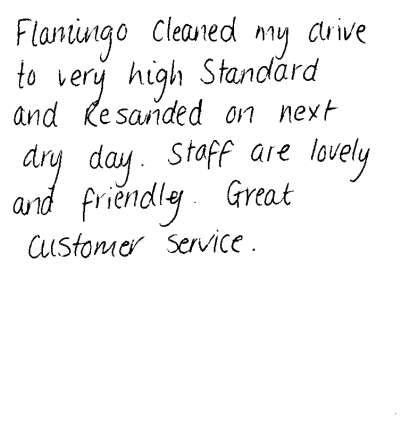 Flamingo Cleaned my drive
to very high Standard
and Resanded on next
dry day. Staff are lovely
and friendly. Great
Customer service.